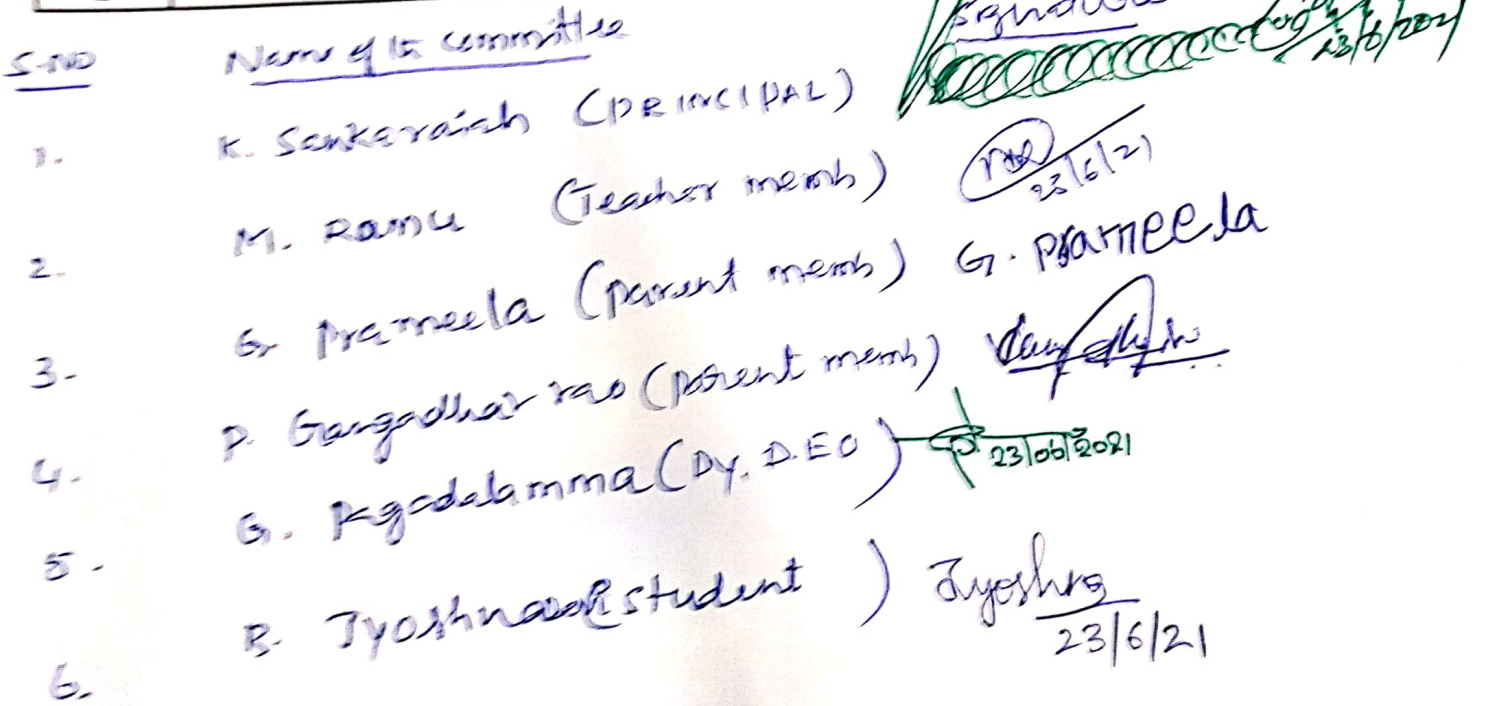 S.NO Name of the committee Signature
1. K. Sankaraiah (PRINCIPAL) 23/6/2021
2. M. Ramu (Teacher memb) 23/6/21
3. G. Prameela (parent memb) G. Prameela
4. P. Gangadhar rao (parent memb)
5. G. Pagadalamma (Dy. D.EO) 23/06/2021
6. B. Jyoshna (student) Jyoshna
23/6/21